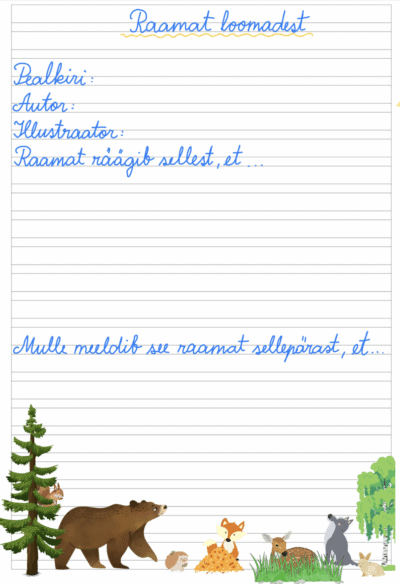 Raamat loomadest
Pealkiri:
Autor:
Illustraator:
Raamat räägib sellest, et ...
Mulle meeldib see raamat sellepärast, et...